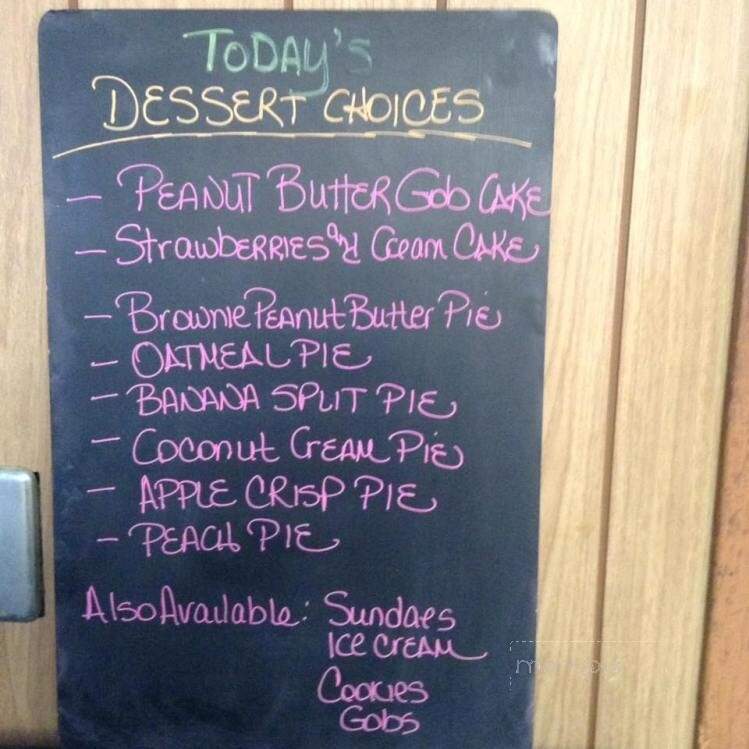 TODAY'S
DESSERT CHOICES
- PEANUT BUTTER Gob CAKE
- StrawbERRIES and Cream CAKE
- Brownie PEANut Butter PiE
- OATMEAL PIE
- BANANA SPLIT PIE
- Coconut CrEAM PiE
- APPLE CRISP PIE
- PEACh PIE
Also Available: Sundaes
ICE CrEAM
Cookies
Gobs